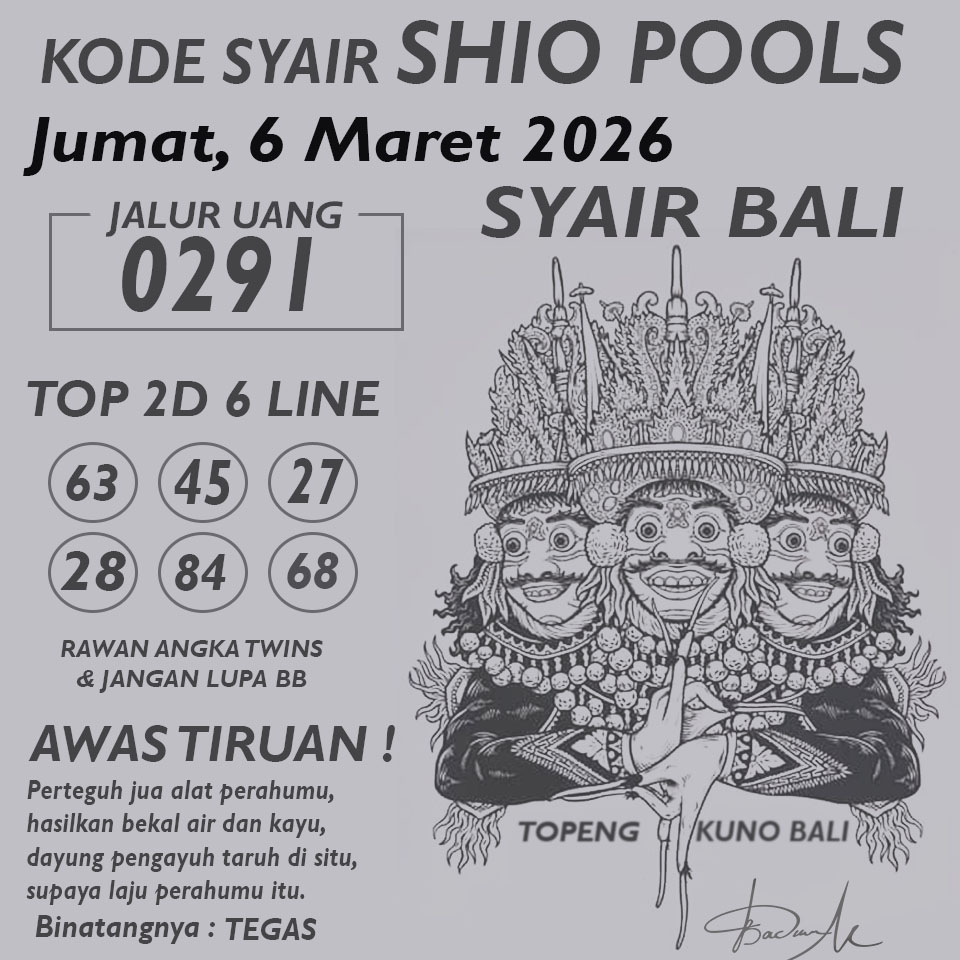 KODE SYAIR SHIO POOLS
Jumat, 6 Maret 2026
SYAIR BALI
JALUR UANG
0291
TOP 2D 6 LINE
63 45 27
28 84 68
RAWAN ANGKA TWINS
& JANGAN LUPA BB
AWAS TIRUAN !
Perteguh jua alat perahumu,
hasilkan bekal air dan kayu,
dayung pengayuh taruh di situ,
supaya laju perahumu itu.
Binatangnya : TEGAS
TOPENG KUNO BALI